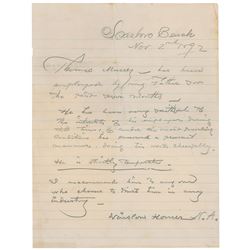 Scarboro Beach
Nov. 2nd 1892
Thomas has been
employed by my Father for
the past seven months
He has been very faithful to
the interests of his employers during
all times, & under the most
conditions has a pleasant
manner, doing his work cheerfully.
He is strictly temperate
I recommend him to anyone
who chance to trust him in any
industry
Winslow Homer N.A.